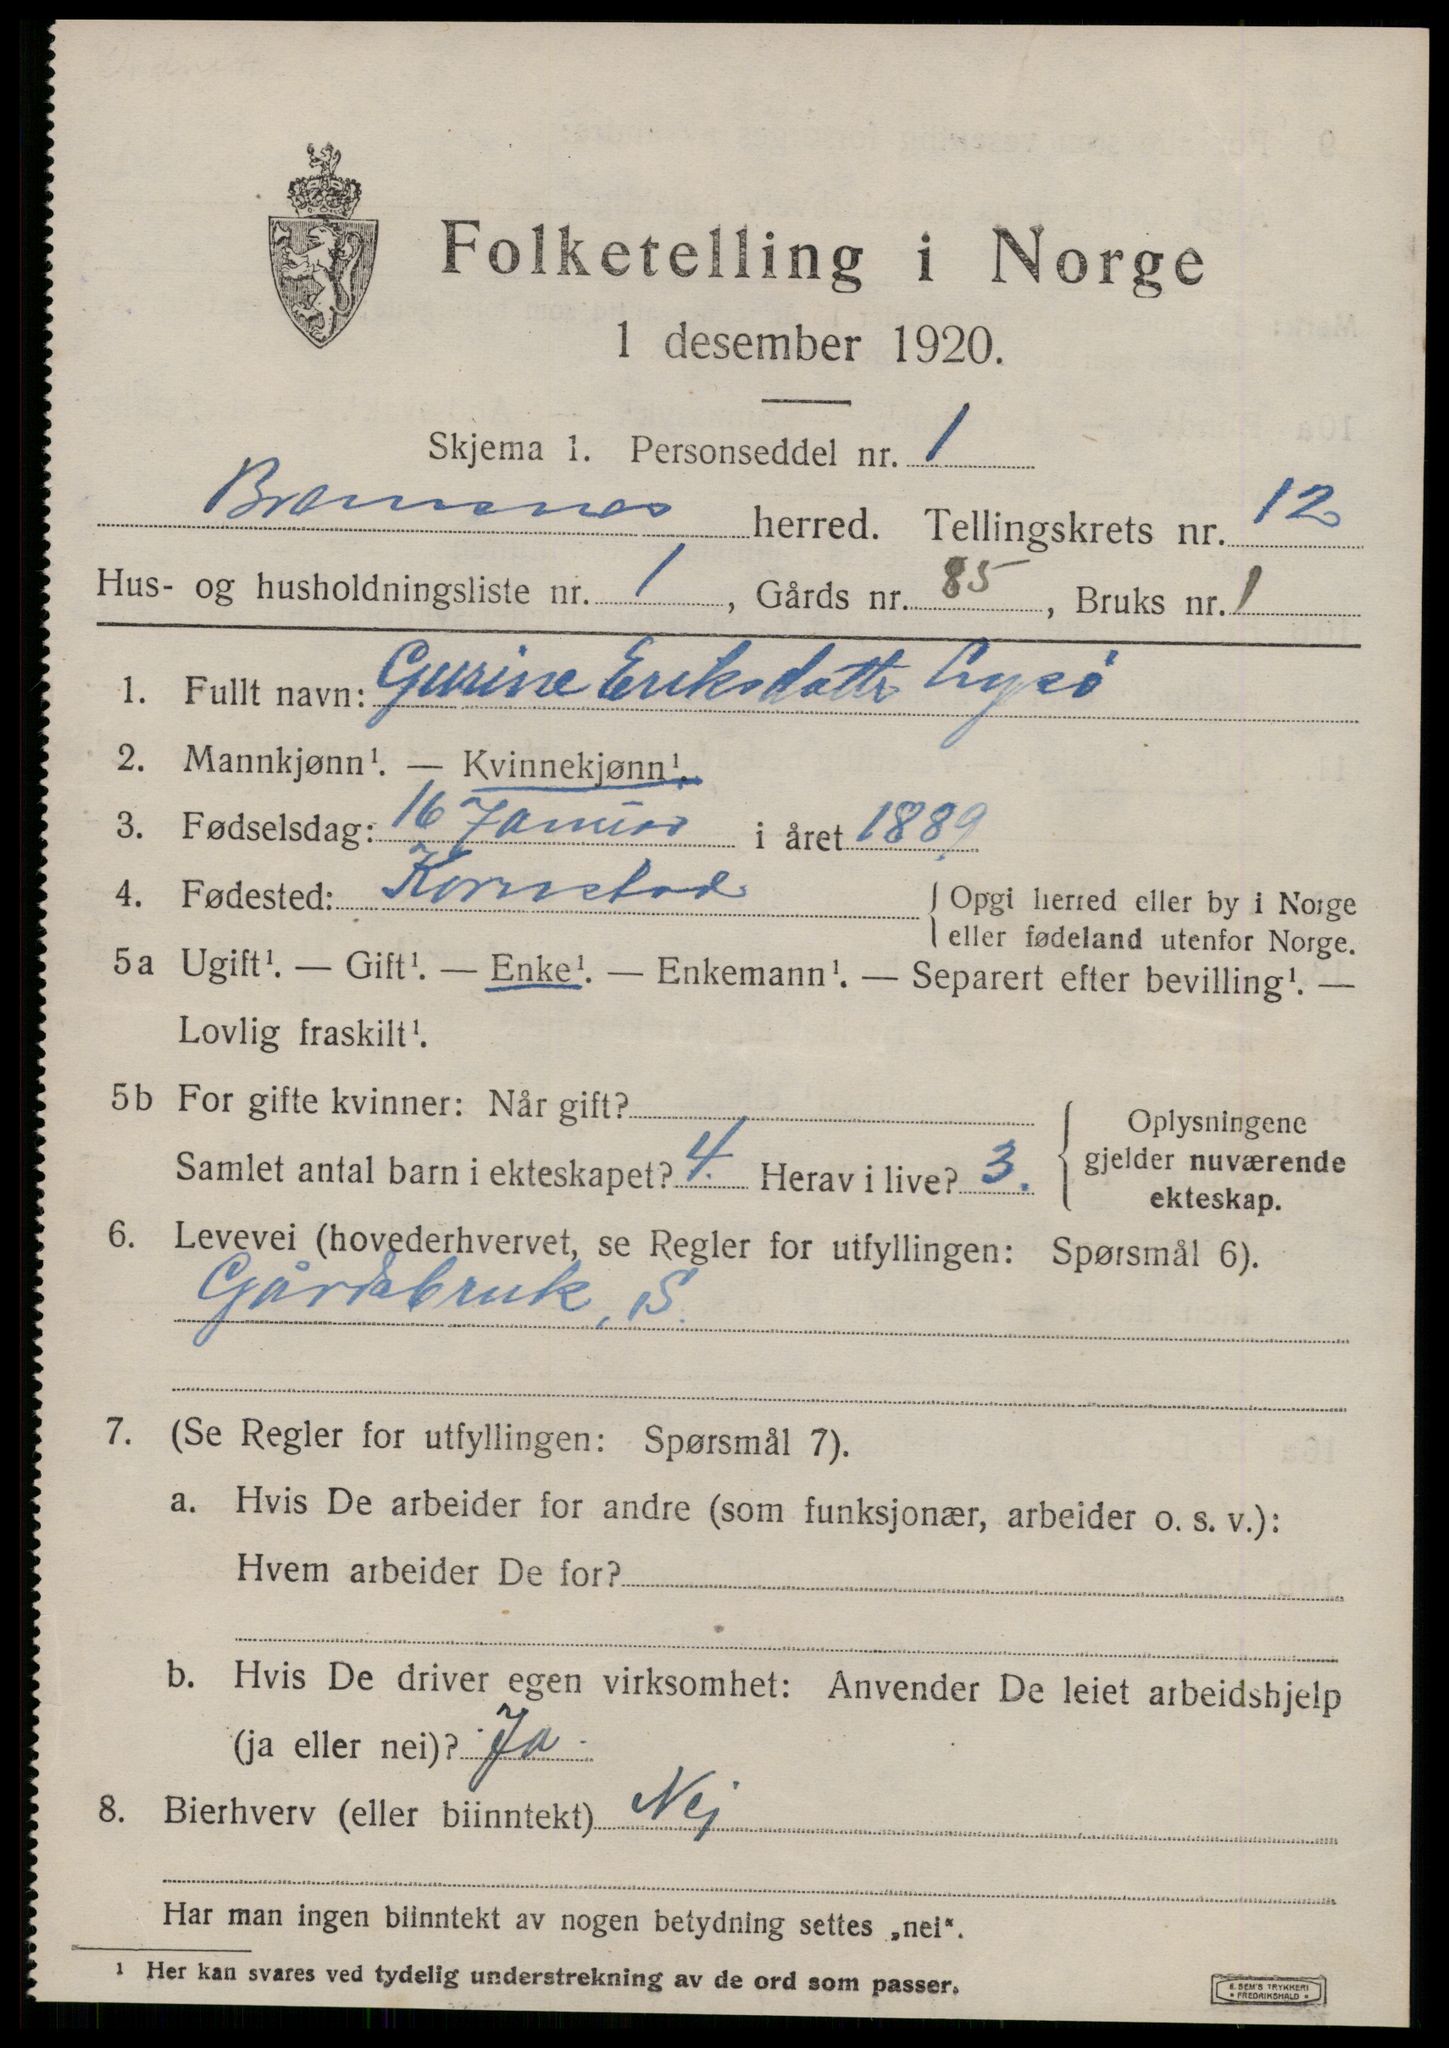 Folketelling i Norge
1 desember 1920.
Skjema 1. Personseddel nr. 1
Bremsnes herred. Tellingskrets nr. 12
Hus- og husholdningsliste nr. 1, Gårds nr. 85, Bruks nr. 1
1. Fullt navn: Gurine Eriksdatter Lysø
2. Mannkjønn¹. — Kvinnekjønn¹.
3. Fødselsdag: 16 Januar i året 1889
4. Fødested: Kornstad { Opgi herred eller by i Norge
eller fødeland utenfor Norge.
5a Ugift¹. — Gift¹. — Enke¹. — Enkemann¹. — Separert efter bevilling¹. —
Lovlig fraskilt¹.
5b For gifte kvinner: Når gift?
Samlet antal barn i ekteskapet? 4. Herav i live? 3.
Oplysningene
gjelder nuværende
ekteskap.
6. Levevei (hovederhvervet, se Regler for utfyllingen: Spørsmål 6).
Gårdsbruk, S.
7. (Se Regler for utfyllingen: Spørsmål 7).
a. Hvis De arbeider for andre (som funksjonær, arbeider o. s. v.):
Hvem arbeider De for?
b. Hvis De driver egen virksomhet: Anvender De leiet arbeidshjelp
(ja eller nei)? Ja.
8. Bierhverv (eller biinntekt) Nej
Har man ingen biinntekt av nogen betydning settes „nei“.
¹ Her kan svares ved tydelig understrekning av de ord som passer.
E. SEM'S TRYKKERI
* FREDRIKSHALD *